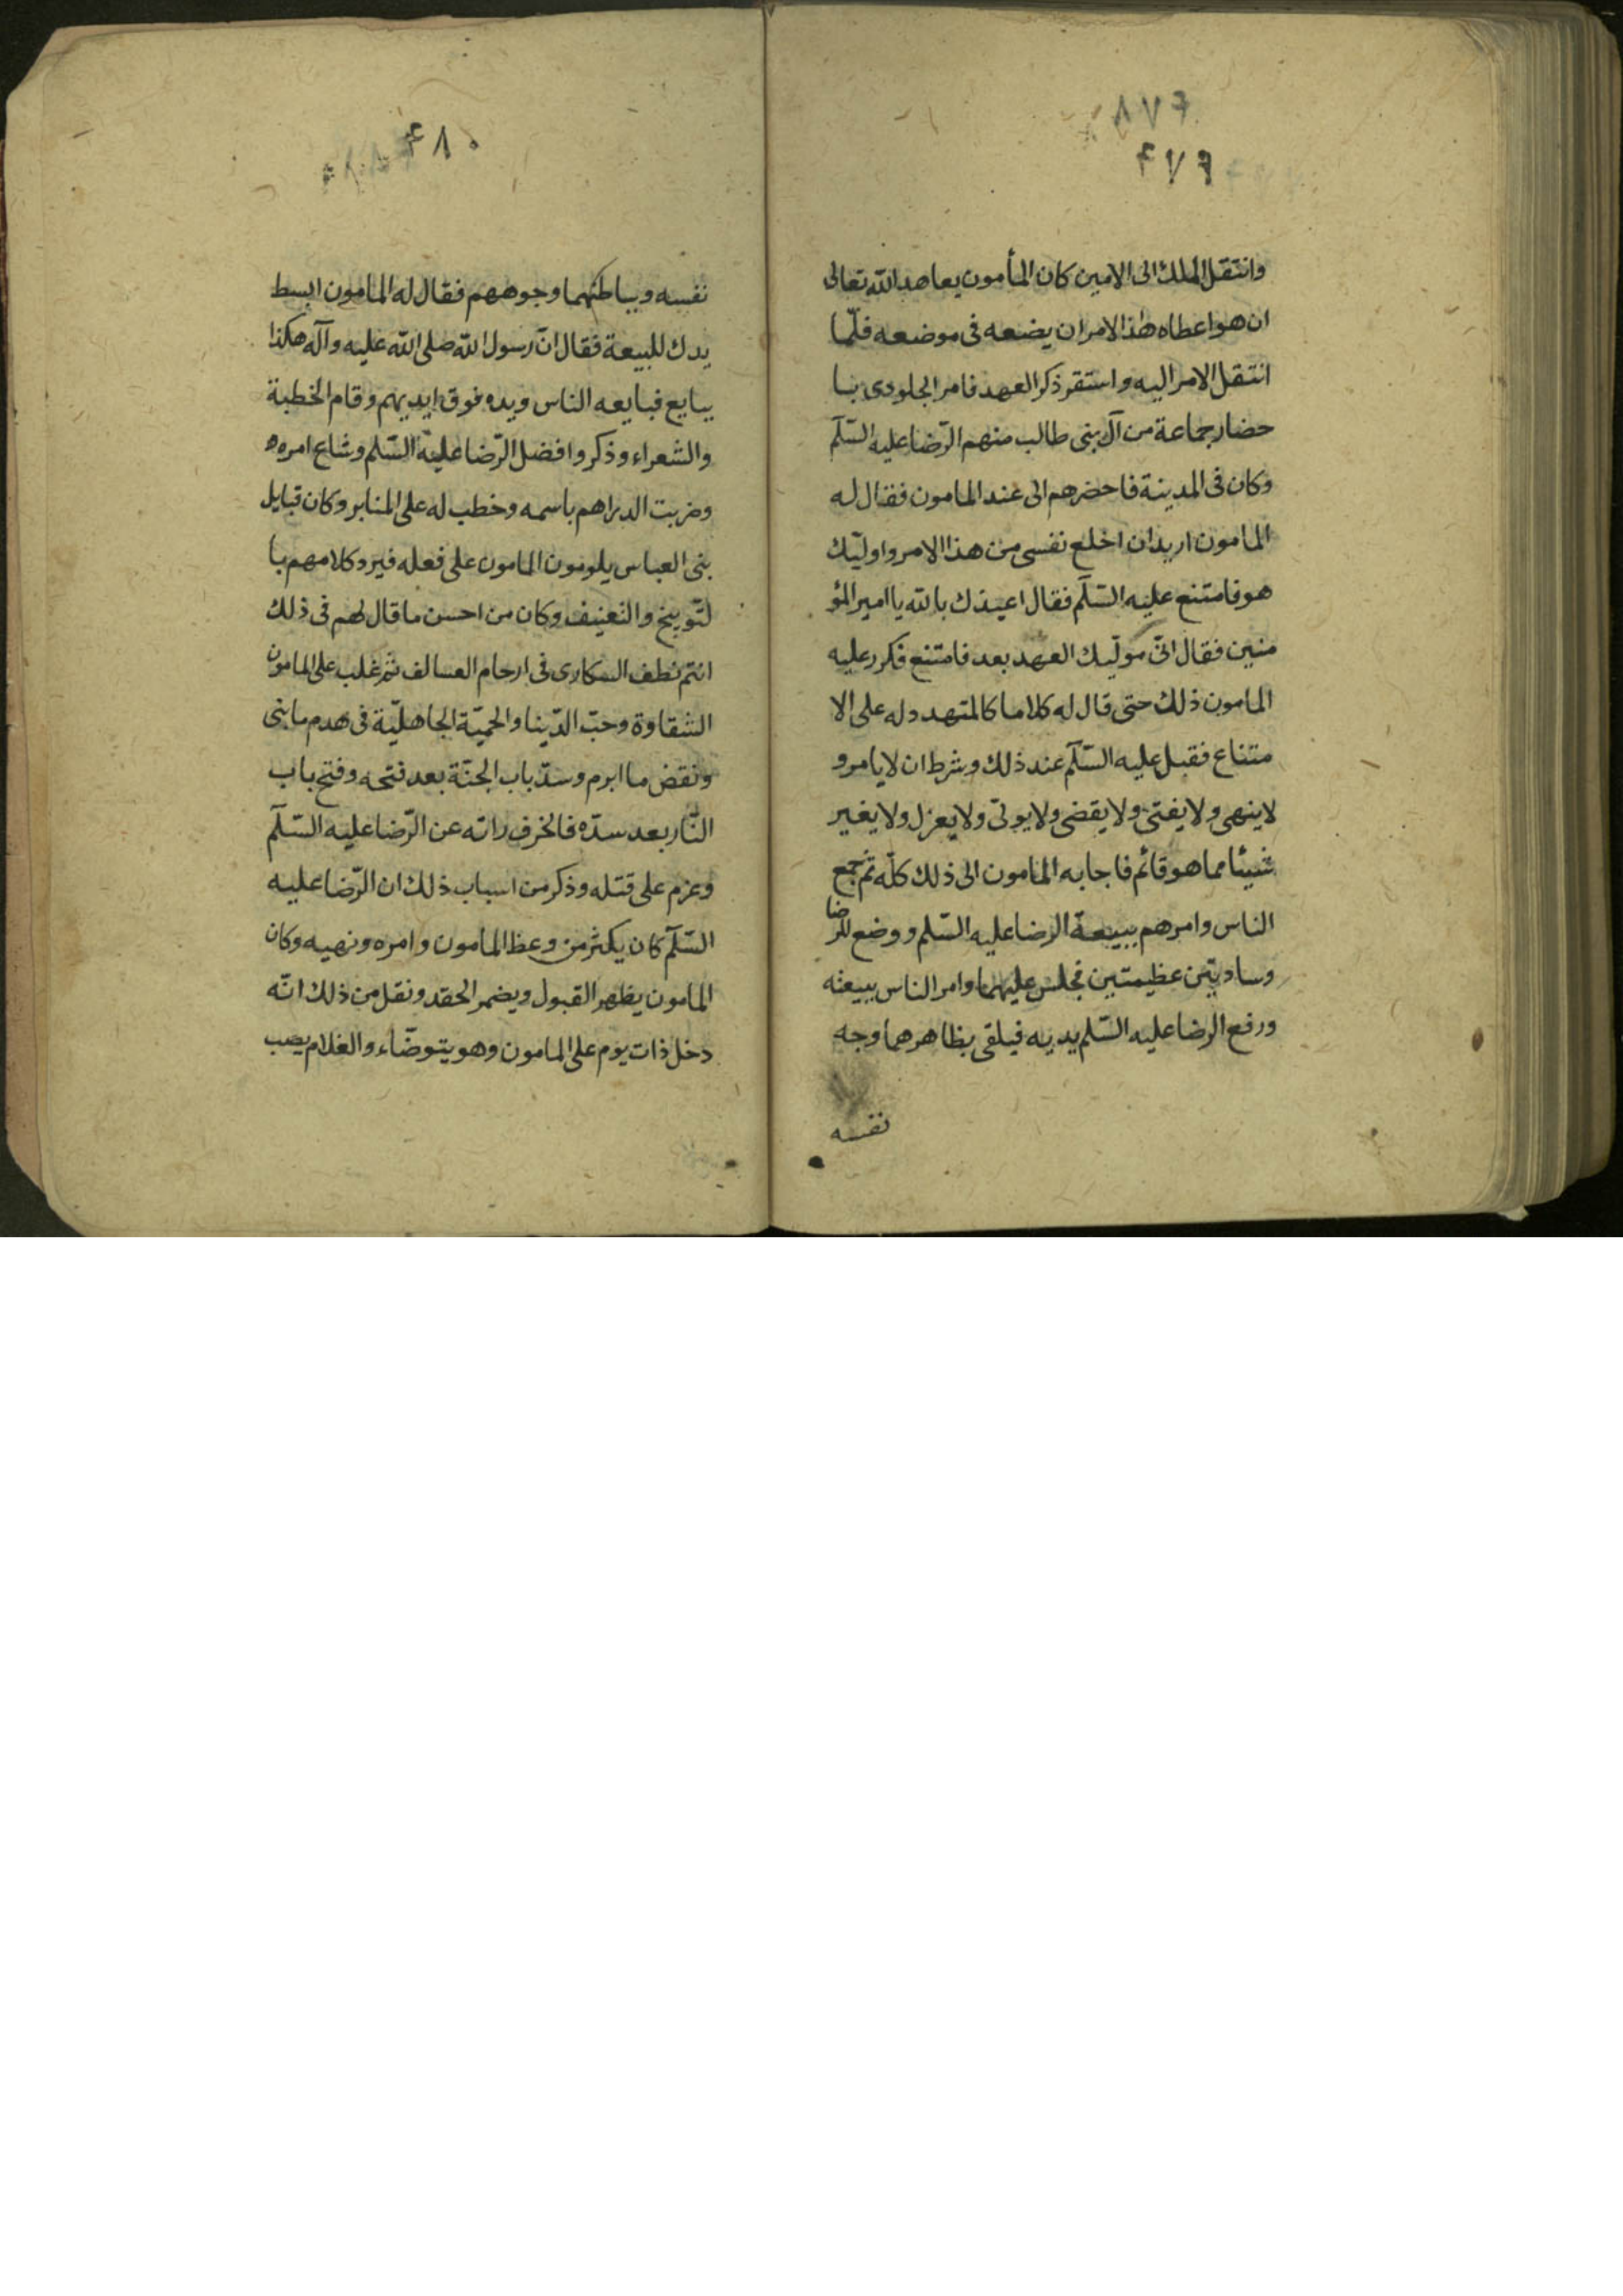 وانتقل الملك الى الامين كان المأمون يعاهد الله تعالى
ان هو اعطاه هذا الامر ان يضعه فى موضعه فلمّا
انتقل الامر اليه واستقر ذكر العهد فامر الجلودى با
حضار جماعة من آل بنى طالب منهم الرّضا عليه السّلم
وكان فى المدينة فاحضرهم الى عند المامون فقال له
المامون اريد ان اخلع نفسى من هذا الامر واوليّك
هو فامتنع عليه السّلم فقال اعيذك بالله يا امير المؤ
منين فقال انّى موليّك العهد بعد فامتنع فكرر عليه
المامون ذلك حتى قال له كلاما كالمتهدد له على الا
متناع فقبل عليه السّلم عند ذلك وشرط ان لا يامر و
لا ينهى ولا يفتى ولا يقضى ولا يولّى ولا يعزل ولا يغير
شيئا مما هو قائم فاجابه المامون الى ذلك كلّه ثم جمع
الناس وامرهم ببيعة الرضا عليه السّلم ووضع للرضا
وسادتين عظيمتين فجلس عليهما وامر الناس ببيعته
ورفع الرضا عليه السّلم يديه فيلقى بظاهرهما وجه
نفسه
٤٨٠
نفسه وبباطنهما وجوههم فقال له المامون ابسط
يدك للبيعة فقال انّ رسول الله صلى الله عليه وآله هكذا
يبايع فبايعه الناس ويده فوق ايديهم وقام الخطبة
والشعراء وذكروا فضل الرّضا عليه السّلم وشاع امره
وضربت الدراهم باسمه وخطب له على المنابر وكان قبايل
بنى العباس يلومون المامون على فعله فيرد كلامهم با
لتّوبيخ والتعنيف وكان من احسن ما قال لهم فى ذلك
انتم نطف السكارى فى ارحام ثم غلب على المامون
الشقاوة وحبّ الدّينا والحميّة الجاهليّة فى هدم ما بنى
ونقض ما ابرم وسدّ باب الجنّة بعد فتحه وفتح باب
النّار بعد سدّه فانحرف عن الرّضا عليه السّلم
وعزم على قتله وذكر من اسباب ذلك ان الرّضا عليه
السّلم كان يكثر من وعظ المامون وامره ونهيه وكان
المامون يظهر القبول ويضمر الحقد ونقل من ذلك انّه
دخل ذات يوم على المامون وهو يتوضّاء والغلام يصب